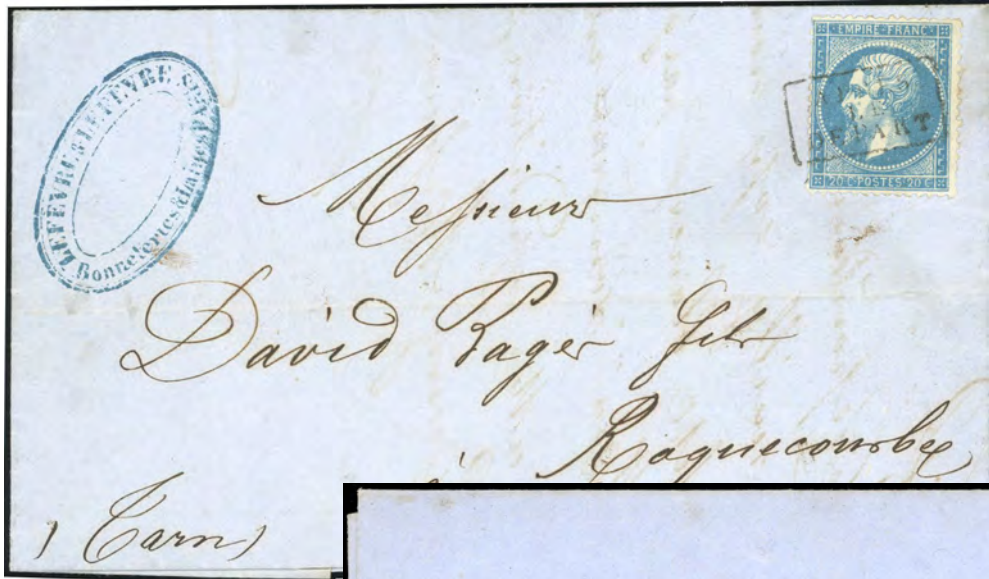 LEFEVRE & LEFEVRE
Bonneteries & Laines
EMPIRE FRANC
20 C POSTES 20 C
Messieur
David
fils
Roquecourbe
à
(Tarn)